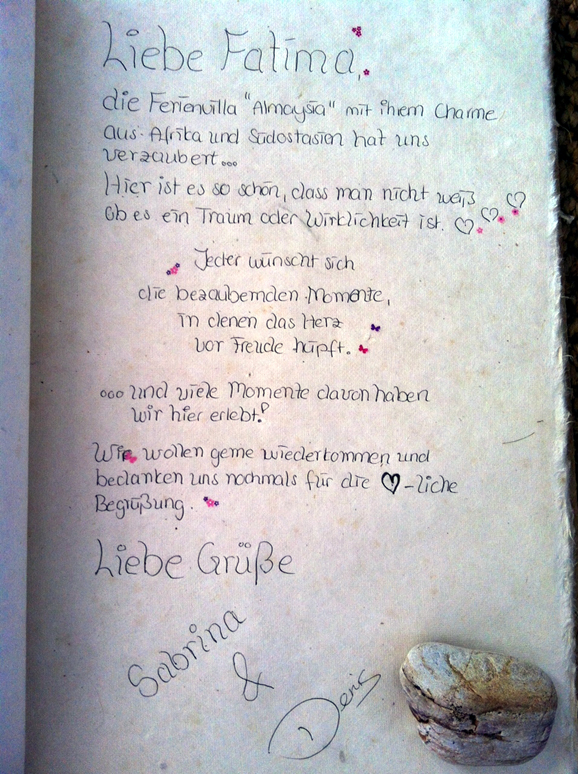 Liebe Fatima,
die Ferienvilla "Almaysia" mit ihrem Charme
aus Afrika und Südostasien hat uns
verzaubert...
Hier ist es so schön, dass man nicht weiß
ob es ein Traum oder Wirklichkeit ist.
Jeder wünscht sich
die bezaubernden Momente,
in denen das Herz
vor Freude hüpft.
... und viele Momente davon haben
wir hier erlebt!
Wir wollen gerne wiederkommen und
bedanken uns nochmals für die ♡-liche
Begrüßung.
Liebe Grüße
Sabrina
&
Denis